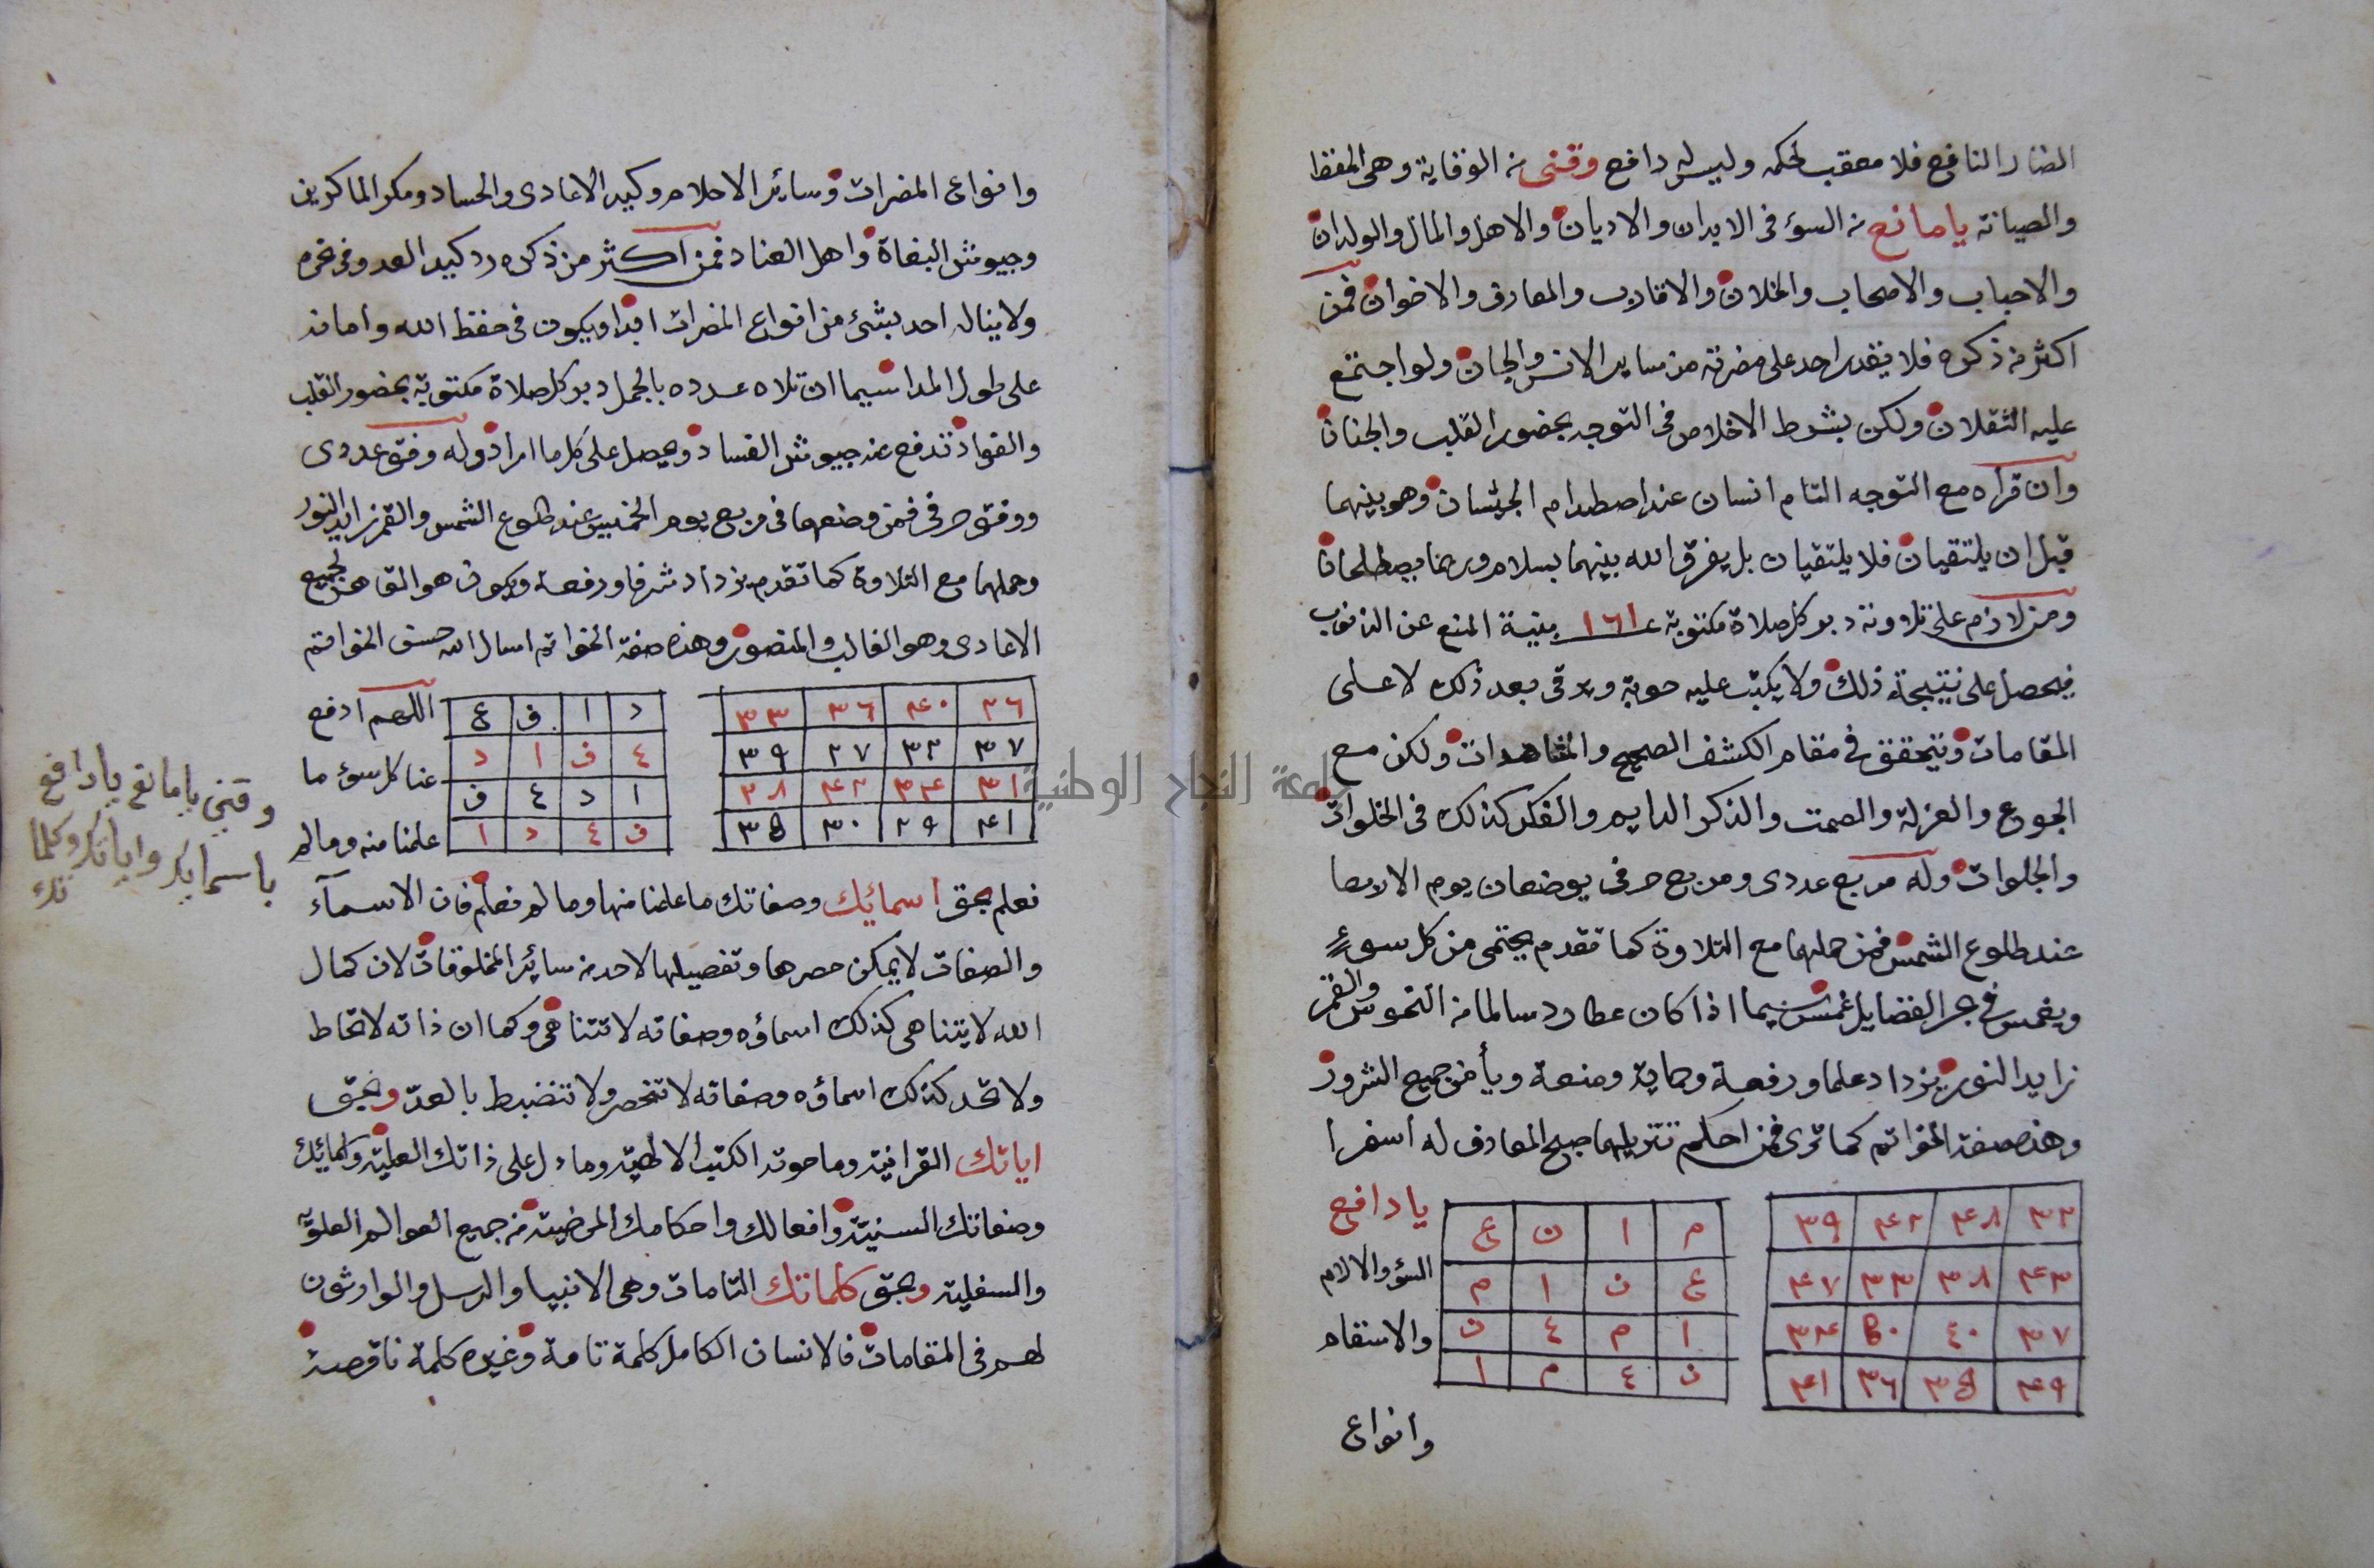 الضار النافع فلا معقب لحكمه وليس له دافع وقني من الوقاية وهي الحفظ
والصيانة يا مانع من السوء في الابدان والاديان والاهل والمال والولدان
والاحباب والاصحاب والخلان والاقارب والمعارف والاخوان فمن
اكثر من ذكره فلا يقدر احد على مضرته من ساير الانس والجان ولو اجتمع
عليه الثقلان ولكن بشرط الاخلاص في التوجه بحضور القلب والجنان
وان قراه مع التوجه التام انسان عند اصطدام الجيشان وهو بينهما
قبل ان يلتقيان فلا يلتقيان بل يفرق الله بينهما بسلام وربما يصطلحان
ومن لازم على تلاوته دبر كل صلاة مكتوبة عــ ١٦١ بنية المنع عن الذنوب
فيحصل على نتيجة ذلك ولا يكتب عليه حوبة ويرقى بعد ذلك لاعلى
المقامات ويتحقق في مقام الكشف الصحيح والمشاهدات ولكن مع
الجوع والعزلة والصمت والذكر الدايم والفكر كذلك في الخلوات
والجلوات وله مربع عددي ومربع حرفي يوضعان يوم الاربعا
عند طلوع الشمس فمن حملهما مع التلاوة كما تقدم يحتمى من كل سوء
ويغمس في بحر الفضايل غمس سيما اذا كان عطارد سالما من النحوس والقمر
زايد النور يزداد علما ورفعة وحماية ومنعة ويأمن جميع الشرور
وهذه صفة الخواتم كما ترى فمن احكم تنزيلهما صبح المعارف له اسفرا
٣٢ ٤٨ ٤٢ ٣٩ م ا ن ع يا دافع
٤٣ ٣٨ ٣٣ ٤٧ ع ن ا م السؤ والالام
٣٧ ٤٠ ٥٠ ٣٤ ا م ع ن والاسقام
٤٩ ٣٥ ٣٦ ٤١ ن ع م ا
وانواع
وانواع المضرات وسائر الاحلام وكيد الاعادي والحساد ومكر الماكرين
وجيوش البغاة واهل العناد فمن اكثر من ذكره رد كيد العدو في نحره
ولا يناله احد بشئ من انواع المضرات ابدا ويكون في حفظ الله وامانه
على طول المدا سيما ان تلاه عدده بالجمل دبر كل صلاة مكتوبة بحضور القلب
والفواد تدفع عنه جيوش الفساد ويحصل على كل ما اراد وله وفق عددي
ووفق حرفي فمن وضعهما في مربع يوم الخميس عند طلوع الشمس والقمر زايد النور
وحملهما مع التلاوة كما تقدم يزداد شرفا ورفعة ويكون هو القاهر لجميع
الاعادي وهو الغالب والمنصور وهذه صفة الخواتم اسال الله حسن الخواتم
٢٦ ٤٠ ٣٦ ٣٣ د ا ف ع اللهم ادفع
٣٧ ٣٢ ٢٧ ٣٩ ع ف ا د عنا كل سوء ما
٣١ ٣٤ ٤٢ ٢٨ ا د ع ف
٤١ ٢٩ ٣٠ ٣٥ ف ع د ا علمنا منه وما لم
نعلم بحق اسمائك وصفاتك ما علمنا منها وما لم نعلم فان الاسمآء
والصفات لا يمكن حصرها وتفصيلها لاحد من سائر المخلوقات لان كمال
الله لا يتناهى كذلك اسماؤه وصفاته لا تتناهى وكما ان ذاته لا تحاط
ولا تحد كذلك اسماؤه وصفاته لا تنحصر ولا تنضبط بالعدّ وبحق
اياتك القرانية وما حوته الكتب الالهية وما دل على ذاتك العلية وكمائك
وصفاتك السنية وافعالك واحكامك المرضية من جميع العوالم العلوية
والسفلية وبحق كلماتك التامات وهي الانبيا والرسل والوارثون
لهم في المقامات فالانسان الكامل كلمة تامة وغيره كلمة ناقصة
وقني يا مانع يا دافع
باسمايك واياتك وكلما
تك
جامعة النجاح الوطنية